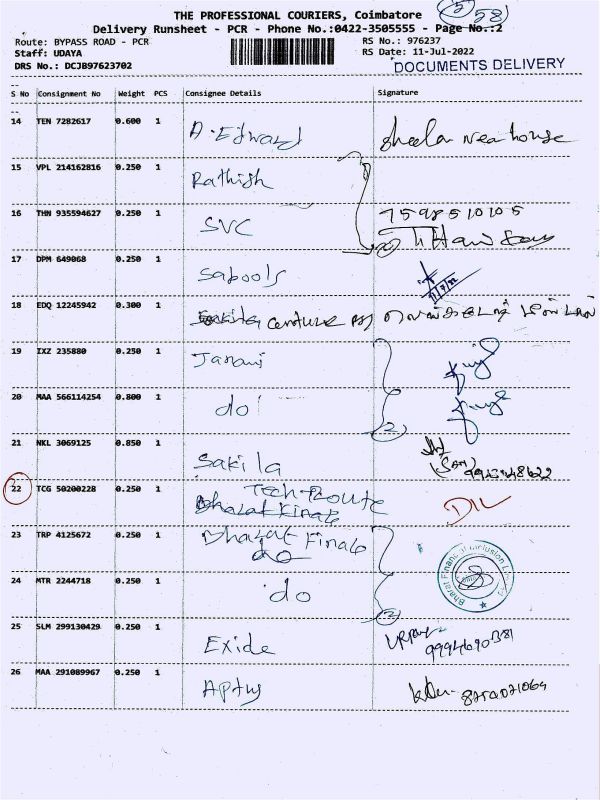 5 58
THE PROFESSIONAL COURIERS, Coimbatore
Delivery Runsheet - PCR - Phone No.:0422-3505555 - Page No.:2
Route: BYPASS ROAD - PCR RS No.: 976237
Staff: UDAYA RS Date: 11-Jul-2022
DRS No.: DCJB97623702 DOCUMENTS DELIVERY
S No Consignment No Weight PCS Consignee Details Signature
14 TEN 7282617 0.600 1 A. Edward Sheela
15 VPL 214162816 0.250 1 Rathish
16 THN 935594627 0.250 1 SVC 7598510105
17 DPM 649068 0.250 1 Sabools
18 EDQ 12245942 0.300 1
19 IXZ 235880 0.250 1 Janani
20 MAA 566114254 0.800 1 do 2
21 NKL 3069125 0.850 1 Sakila
22 TCG 50200228 0.250 1 Tech Route
23 TRP 4125672 0.250 1 Bharat Finale do
24 MTR 2244718 0.250 1 do 2
Bharat Financial Inclusion
25 SLM 299130429 0.250 1 Exide
26 MAA 291089967 0.250 1 Aptus